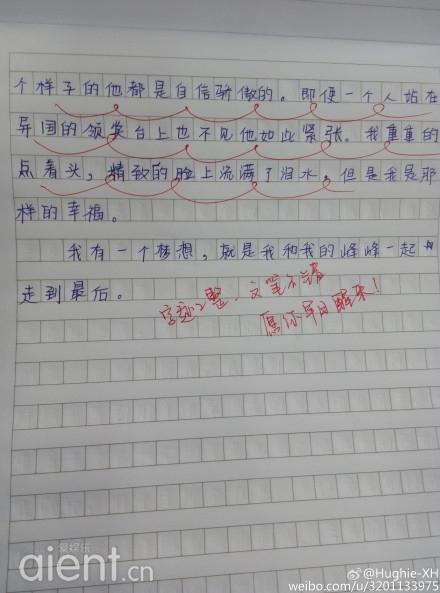 个样子的他都是自信骄傲的。即便一个人站在
异国的领奖台上也不见他如此紧张。我重重的
点着头，精致的脸上流满了泪水，但是我是那
样的幸福。
我有一个梦想，就是我和我的峰峰一起
走到最后。
字迹工整，文笔不错
愿你早日醒来！
爱娱乐
aient.cn
@Hughie-XH
weibo.com/u/3201133975